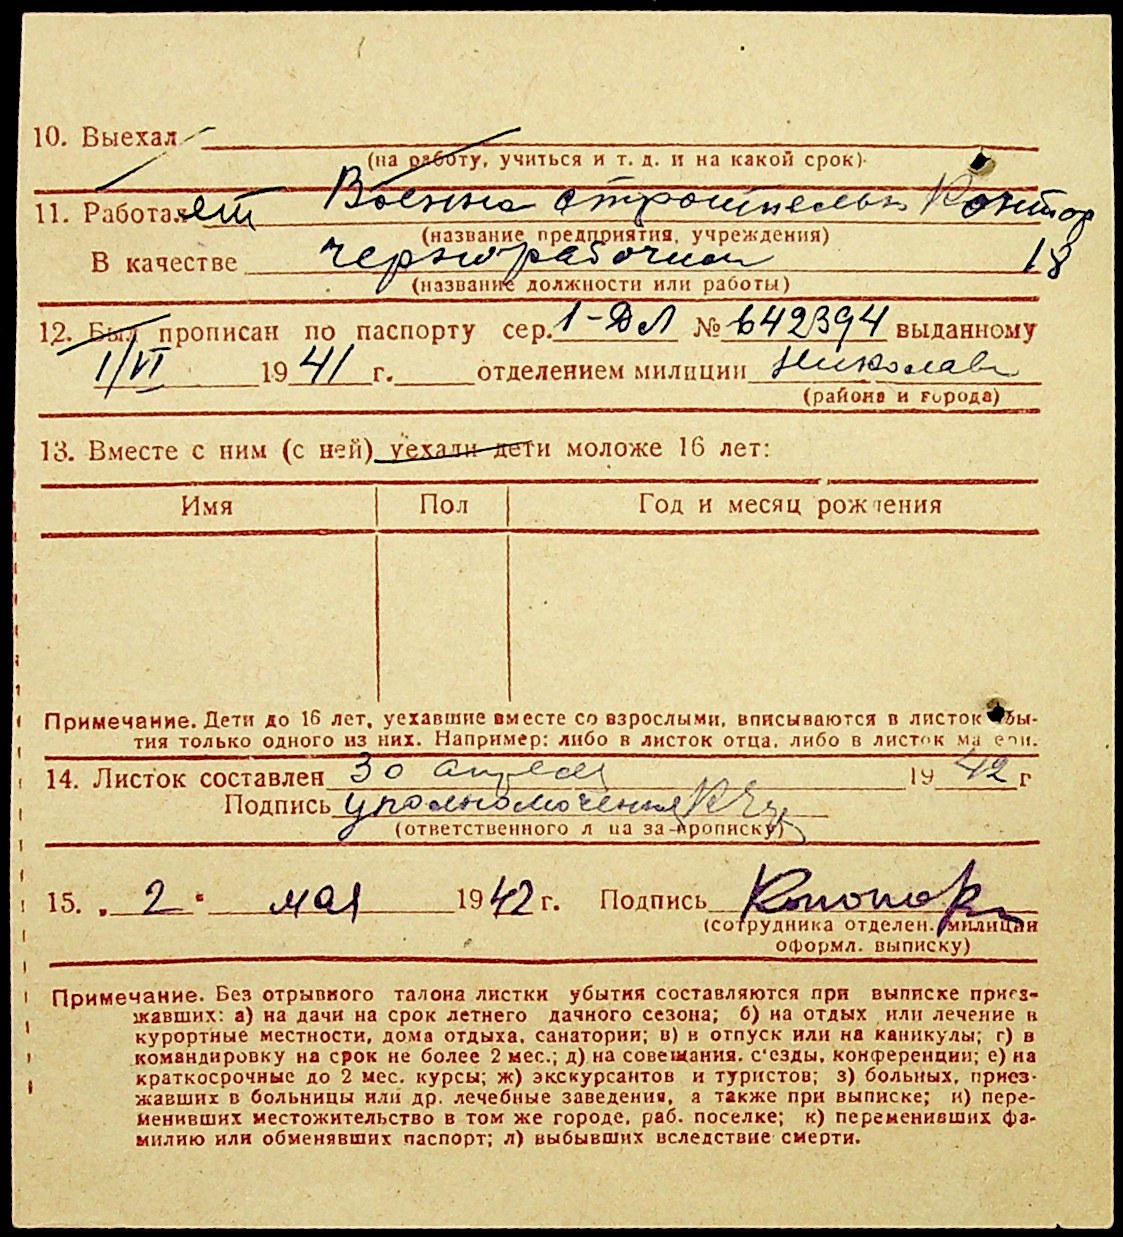 10. Выехал
(на работу, учиться и т. д. и на какой срок)
11. Работает Военно строительн Контор
(название предприятия, учреждения)
В качестве чернорабочий 18
(название должности или работы)
12. Был прописан по паспорту сер. 1-ДЛ № 642394 выданному
1/VI 1941 г. отделением милиции Николаев
(района и города)
13. Вместе с ним (с ней) уехали дети моложе 16 лет:
Имя Пол Год и месяц рождения
Примечание. Дети до 16 лет, уехавшие вместе со взрослыми, вписываются в листок убы-
тия только одного из них. Например: либо в листок отца, либо в листок матери.
14. Листок составлен 30 апреля 1942 г
Подпись уполномоченная
(ответственного лица за прописку)
15. „ 2 " мая 1942 г. Подпись
(сотрудника отделен. милиции
оформл. выписку)
Примечание. Без отрывного талона листки убытия составляются при выписке приез-
жавших: а) на дачи на срок летнего дачного сезона; б) на отдых или лечение в
курортные местности, дома отдыха, санатории; в) в отпуск или на каникулы; г) в
командировку на срок не более 2 мес.; д) на совещания, с'езды, конференции; е) на
краткосрочные до 2 мес. курсы; ж) экскурсантов и туристов; з) больных, приез-
жавших в больницы или др. лечебные заведения, а также при выписке; и) пере-
менивших местожительство в том же городе, раб. поселке; к) переменивших фа-
милию или обменявших паспорт; л) выбывших вследствие смерти.